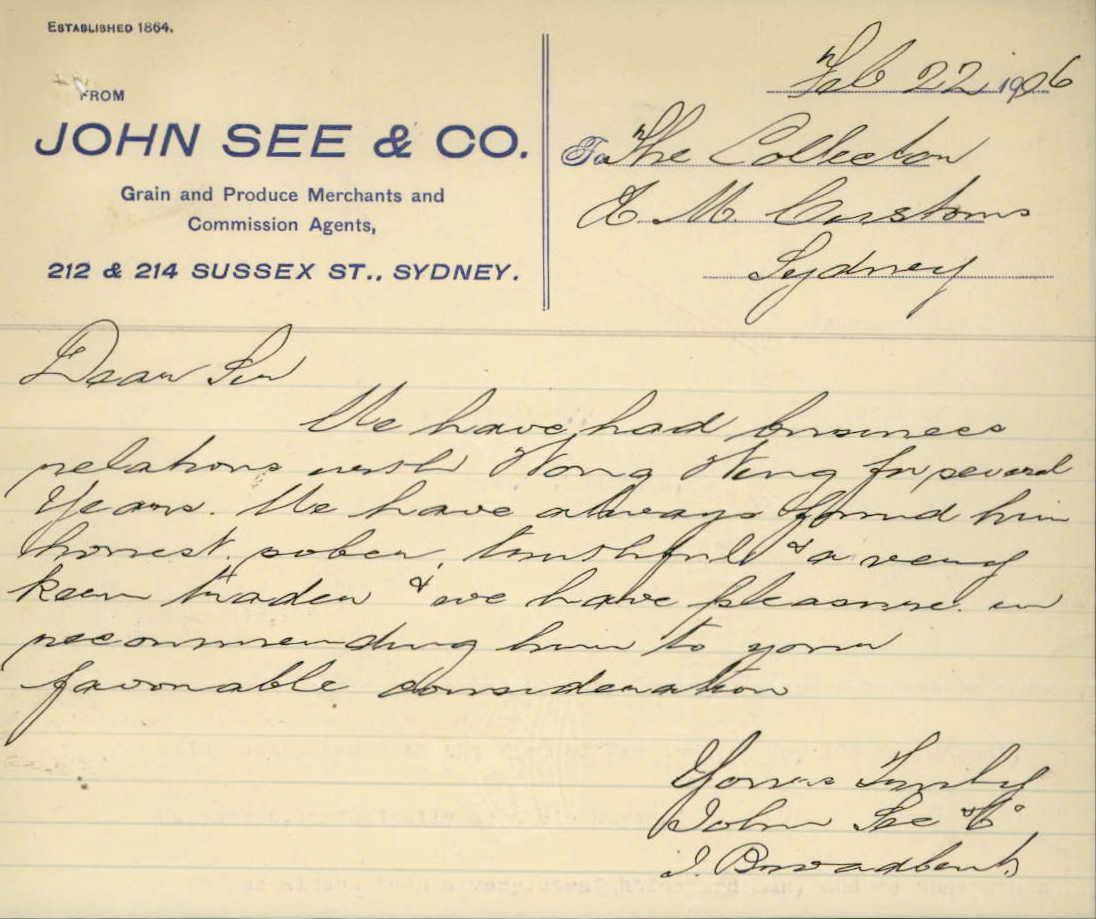 ESTABLISHED 1864.
FROM
JOHN SEE & CO.
Grain and Produce Merchants and
Commission Agents,
212 & 214 SUSSEX ST., SYDNEY.
Feb 22 1906
To The Collector
H. M. Customs
Sydney
Dear Sir
We have had business
relations with Wong Wing for several
Years. We have always found him
honest, sober, truthful & a very
keen trader & we have pleasure in
recommending him to your
favorable consideration
Yours Truly
John See & Co
J. Broadbent